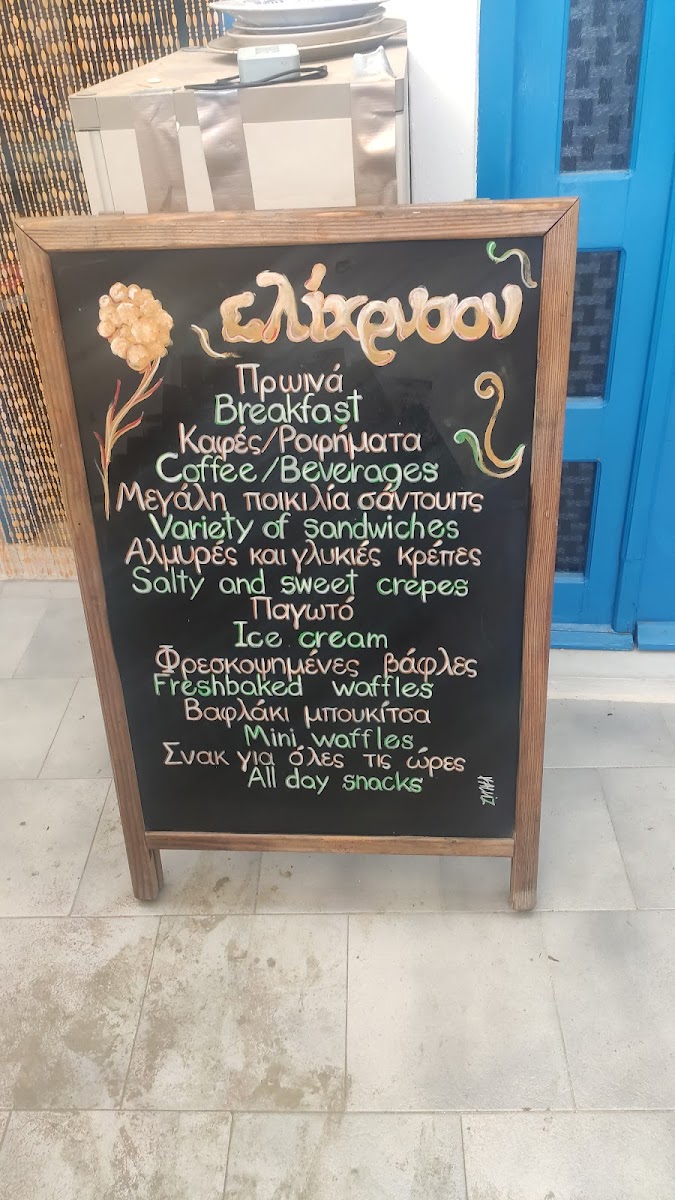 ελίχρυσον
Πρωινά
Breakfast
Καφές/Ροφήματα
Coffee/Beverages
Μεγάλη ποικιλία σάντουιτς
Variety of sandwiches
Αλμυρές και γλυκιές κρέπες
Salty and sweet crepes
Παγωτό
Ice cream
Φρεσκοψημένες βάφλες
Freshbaked waffles
Βαφλάκι μπουκίτσα
Mini waffles
Σνακ για όλες τις ώρες
All day snacks